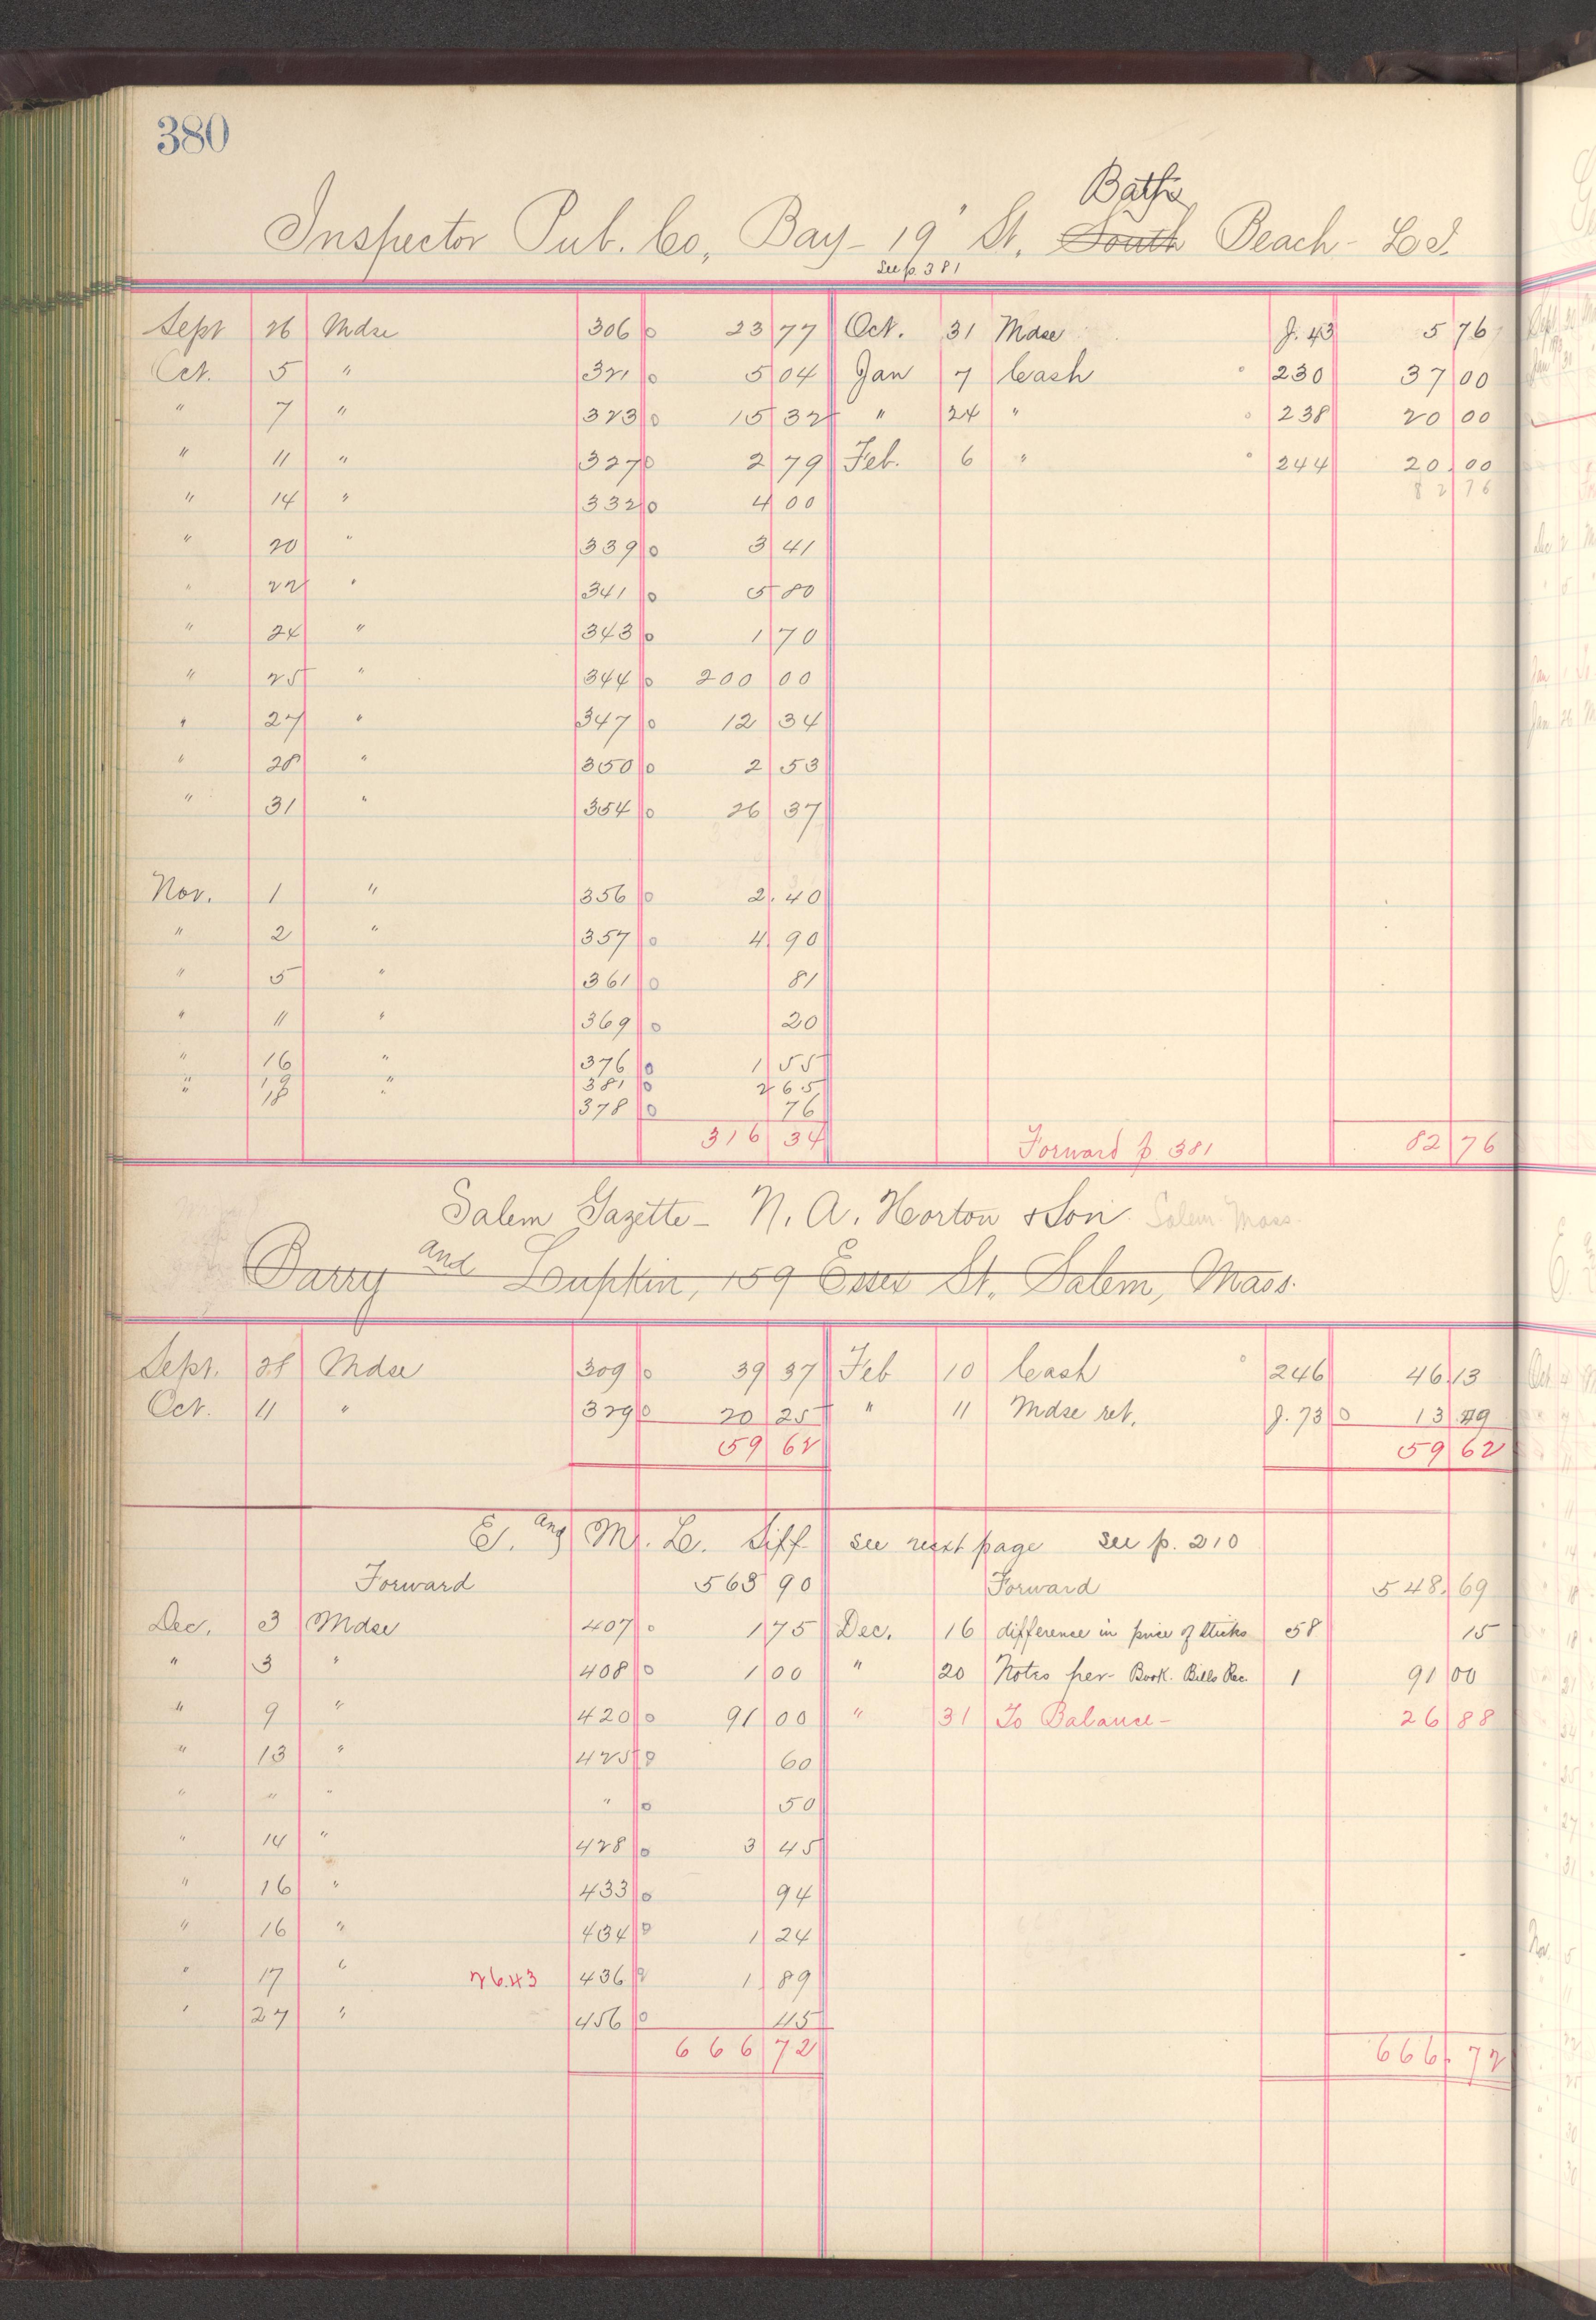 380
Baths
Inspector Pub. Co, Bay - 19" St. South Beach - L.I.
See p. 381
Sept 26 Mdse 306 0 23 77 Oct. 31 Mdse J. 43 5 76
Oct. 5 " 321 0 5 04 Jan 7 Cash 230 37 00
" 7 " 323 0 15 32 " 24 " 238 20 00
" 11 " 327 0 2 79 Feb. 6 " 244 20.00
82 76
" 14 " 332 0 4 00
" 20 " 339 0 3 41
" 22 " 341 0 5 80
" 24 " 343 0 1 70
" 25 " 344 0 200 00
" 27 " 347 0 12 34
" 28 " 350 0 2 53
" 31 " 354 0 26 37
Nov. 1 " 356 0 2.40
" 2 " 357 0 4 90
" 5 " 361 0 81
" 11 " 369 0 20
" 16 " 376 0 1 55
" 19 " 381 0 2 65
" 18 " 378 0 76
316 34 Forward p 381 82 76
Salem Gazette - N. A. Horton & Son Salem Mass.
Barry and Lufkin, 159 Essex St. Salem, Mass.
Sept. 28 Mdse 309 0 39 37 Feb 10 Cash 246 46.13
Oct. 11 " 329 0 20 25 " 11 Mdse ret. J. 73 0 13.49
59 62 59 62
E. and M. L. Tiff see next page see p. 210
Forward 563 90 Forward 548.69
Dec. 3 Mdse 407 0 1 75 Dec. 16 difference in price of sticks 58 15
" 3 " 408 0 1 00 " 20 Notes per Book. Bills Rec. 1 91 00
" 9 " 420 0 91 00 " 31 To Balance - 26 88
" 13 " 425 0 60
" " " " 0 50
" 14 " 428 0 3 45
" 16 " 433 0 94
" 16 " 434 0 1 24
" 17 " 26.43 436 0 1.89
" 27 " 456 0 45
666 72 666.72